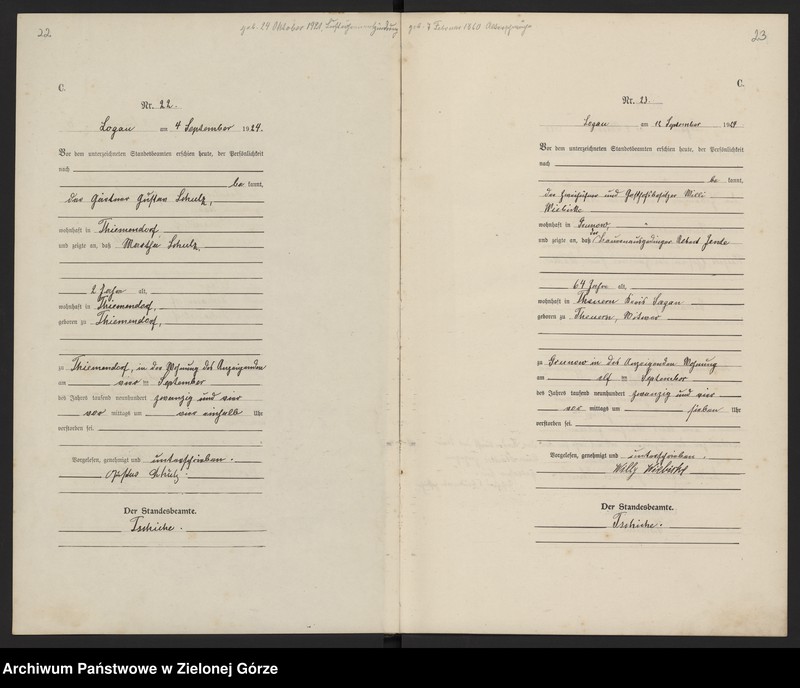 22
geb. 29 Oktober 1921
C.
Nr. 22.
Logau am 4 September 1924.
Vor dem unterzeichneten Standesbeamten erschien heute, der Persönlichkeit
nach
be kannt,
der Gärtner Gustav Schulz,
wohnhaft in Thiemendorf
und zeigte an, daß Martha Schulz,
2 Jahr alt,
wohnhaft in Thiemendorf,
geboren zu Thiemendorf,
zu Thiemendorf, in der Wohnung des Anzeigenden
am vier ten September
des Jahres tausend neunhundert zwanzig und vier
vor mittags um vier einhalb Uhr
verstorben sei.
Vorgelesen, genehmigt und unterschrieben.
Gustav Schulz
Der Standesbeamte.
Tschiche.
geb. 7 Februar 1860 Altersschwäche
23
C.
Nr. 23.
Logau am 12 September 1924
Vor dem unterzeichneten Standesbeamten erschien heute, der Persönlichkeit
nach
be kannt,
der und Gasthofbesitzer Willi
wohnhaft in Grunow,
und zeigte an, daß der Albert
64 Jahre alt,
wohnhaft in Theuern Kreis Sagan
geboren zu Theuern, Witwer
zu Grunow in des Anzeigenden Wohnung
am elf ten September
des Jahres tausend neunhundert zwanzig und vier
vor mittags um sieben Uhr
verstorben sei.
Vorgelesen, genehmigt und unterschrieben.
Willy
Der Standesbeamte.
Tschiche.
Archiwum Państwowe w Zielonej Górze